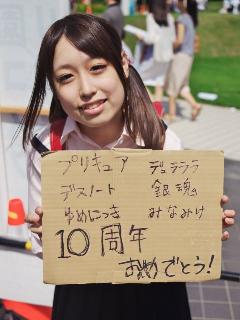 プリキュア デュラララ
デスノート 銀魂
ゆめにっき みなみけ
10周年
おめでとう!